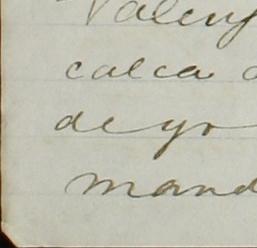 Valeny
calca a
de yo
mand